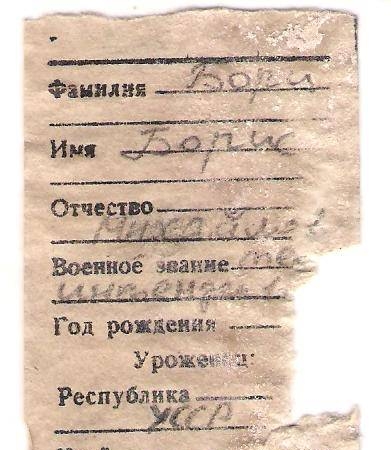 Фамилия Бори
Имя Борис
Отчество
Михайлов
Военное звание тех
интендан
Год рождения
Уроженец:
Республика
УССР